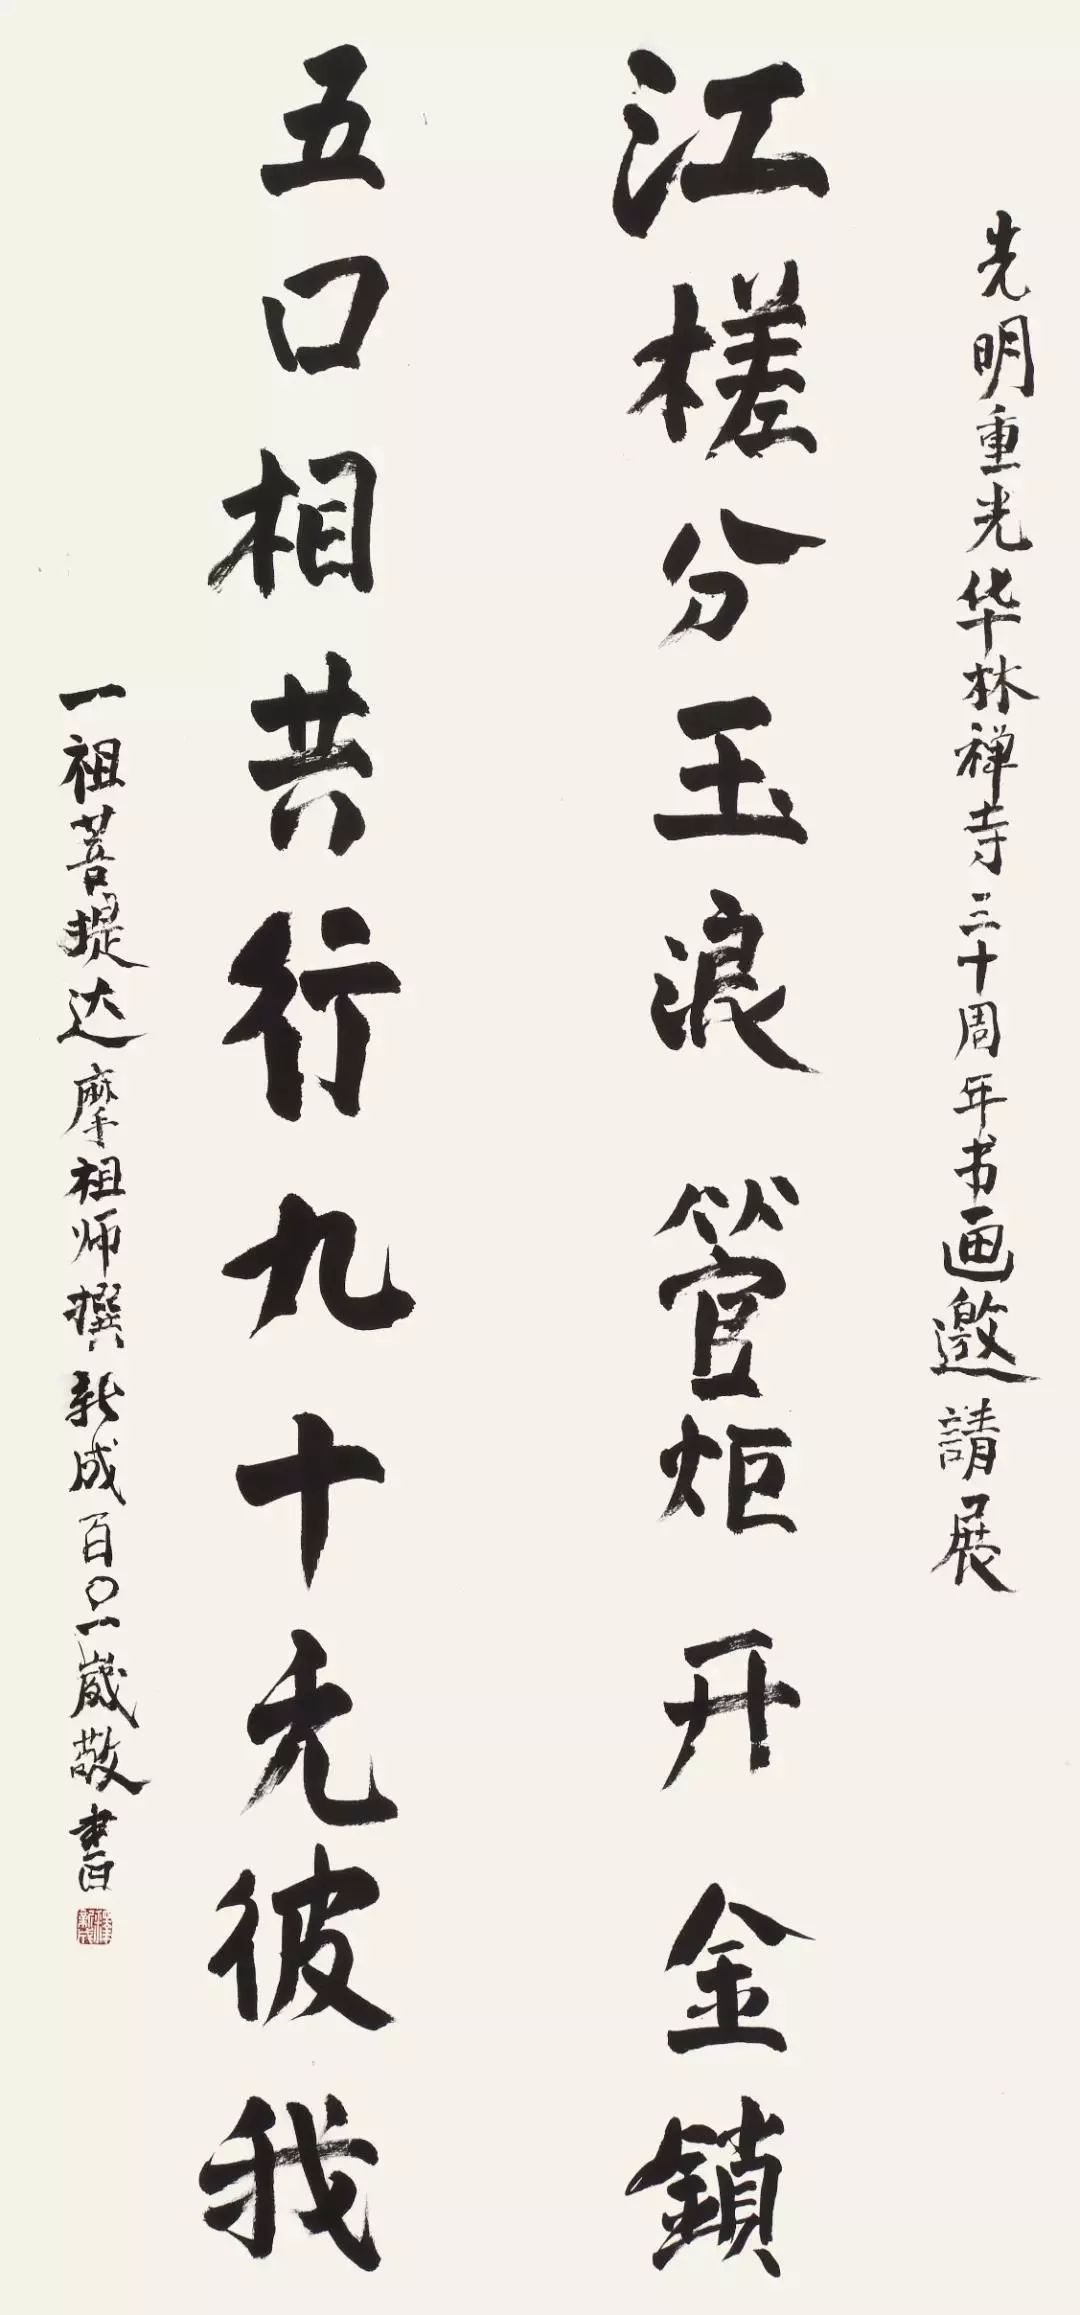 先明重光华林禅寺三十周年书画邀請展
江槎分玉浪管炬开金鎖
五口相共行九十无彼我
一祖菩提达摩祖师撰新成百〇一歲敬書
釋新成